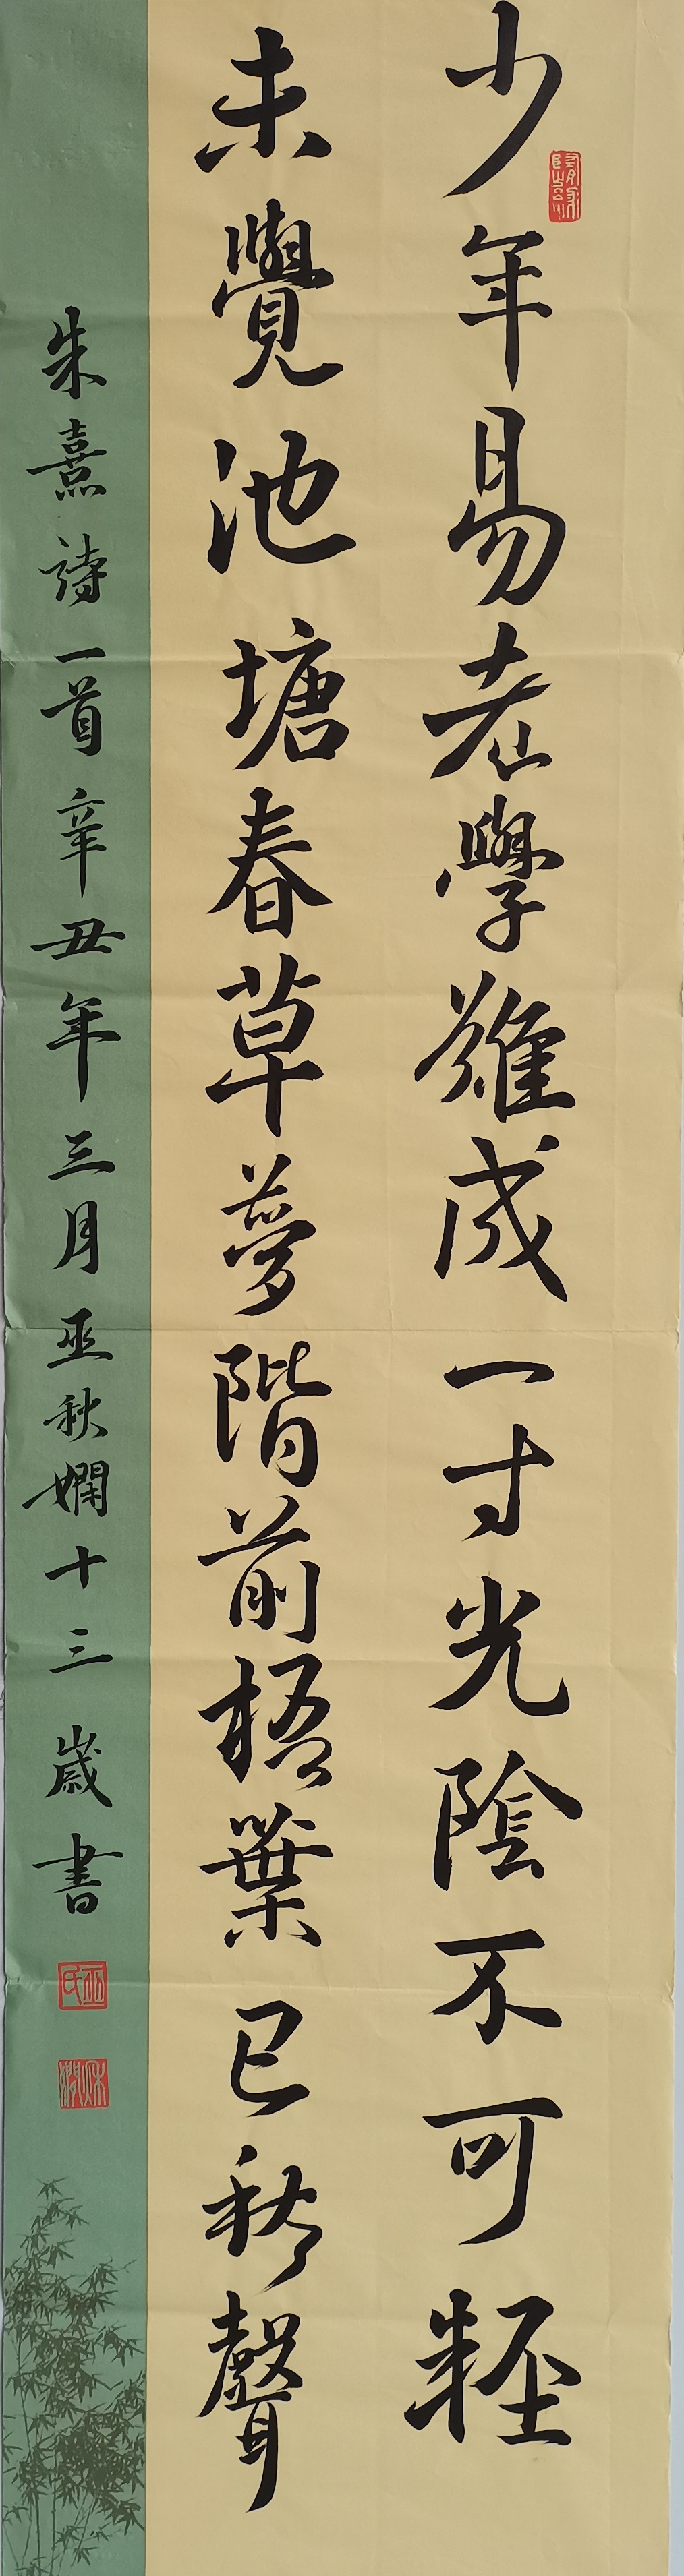 少年易老學難成一寸光陰不可輕
未覺池塘春草夢階前梧葉已秋聲
朱熹詩一首辛丑年三月巫秋嫻十三歲書
巫氏
秋嫻